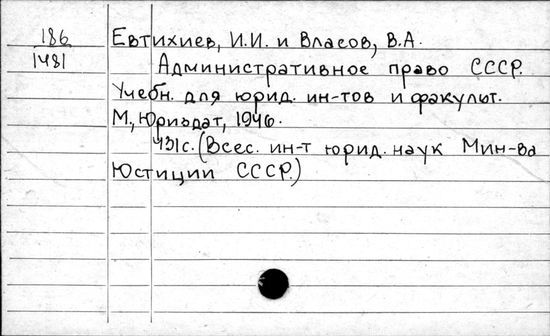 186 Евтихиев, И.И. и Власов, В.А.
1481 Административное право СССР.
Учебн. для юрид. ин-тов и факульт.
М., Юриздат, 1946.
431с. (Всес. ин-т юрид. наук Мин-ва
Юстиции СССР.)